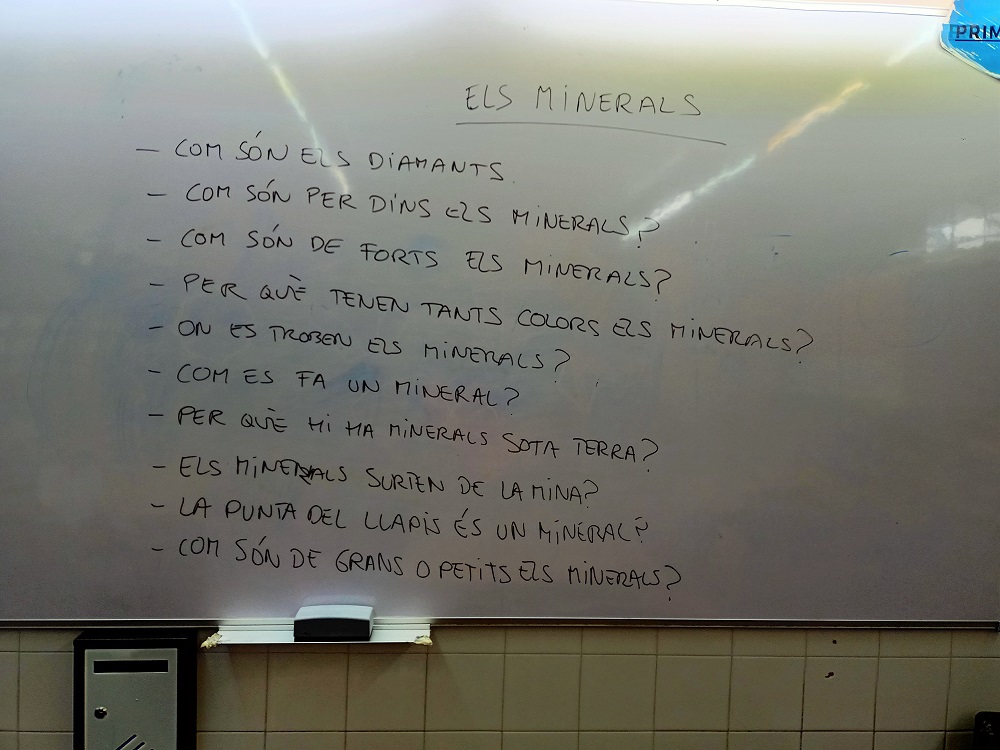 PRIM
ELS MINERALS
- COM SÓN ELS DIAMANTS
- COM SÓN PER DINS ELS MINERALS?
- COM SÓN DE FORTS ELS MINERALS?
- PER QUÈ TENEN TANTS COLORS ELS MINERALS?
- ON ES TROBEN ELS MINERALS?
- COM ES FA UN MINERAL?
- PER QUÈ HI HA MINERALS SOTA TERRA?
- ELS MINERALS SURTEN DE LA MINA?
- LA PUNTA DEL LLAPIS ÉS UN MINERAL?
- COM SÓN DE GRANS O PETITS ELS MINERALS?